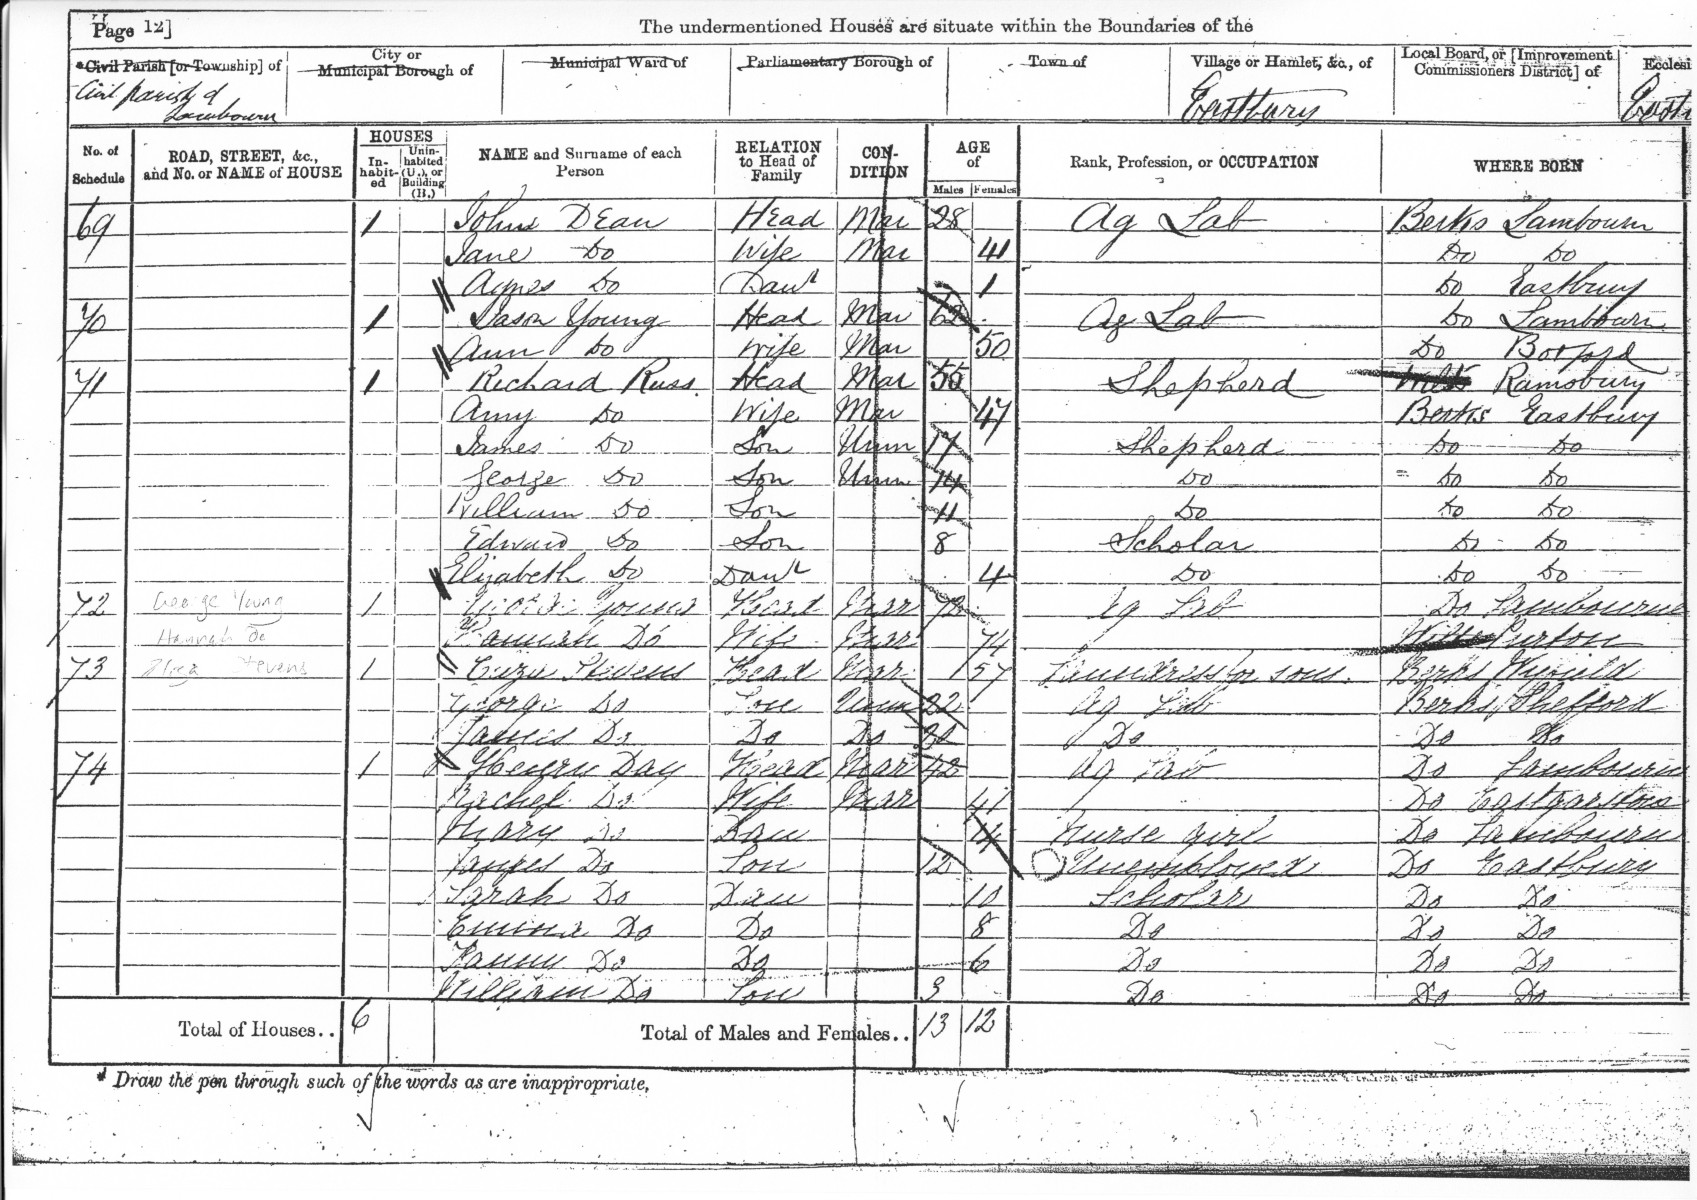 Page 12]
The undermentioned Houses are situate within the Boundaries of the
*Civil Parish [or Township] of
City or Municipal Borough of
Municipal Ward of
Parliamentary Borough of
Town of
Village or Hamlet, &c., of
Local Board, or [Improvement Commissioners District] of
Ecclesi
Civil Parish of Lambourn
Eastbury
East
No. of Schedule
ROAD, STREET, &c., and No. or NAME of HOUSE
HOUSES
In-habit-ed
Unin-habited (U.), or Building (B.)
NAME and Surname of each Person
RELATION to Head of Family
CON-DITION
AGE of
Males
Females
Rank, Profession, or OCCUPATION
WHERE BORN
69 1 John DEan Head Mar 28 Ag Lab Berks Lambourn
Jane Do Wife Mar 41 Do Do
Agnes Do Daur 1 Do Eastbury
70 1 Jason Young Head Mar 62 Ag Lab Do Lambourn
Ann Do Wife Mar 50 Do Boxford
71 1 Richard Russ Head Mar 55 Shepherd Wilts Ramsbury
Amy Do Wife Mar 47 Berks Eastbury
James Do Son Unm 17 Shepherd Do Do
George Do Son Unm 14 Do Do Do
William Do Son 11 Do Do Do
Edward Do Son 8 Scholar Do Do
Elizabeth Do Daur 4 Do Do Do
72 George Young 1 Young Head Mar Ag Lab Do Lambourne
Hannah Do Hannah Do Wife Mar 74 Wilts Purton
73 Eliza Stevens 1 Eliza Stevens Head Mar 57 Laundress for sons. Berks
George Do Son Unm 22 Ag Lab Berks Shefford
James Do Do Do 20 Do Do Do
74 1 Henry Day Head Mar 42 Ag Lab Do Lambourn
Rachel Do Wife Mar 41 Do Eastgarston
Mary Do Dau 14 Nurse girl Do Lambourn
James Do Son 12 Unemployed Do Eastbury
Sarah Do Dau 10 Scholar Do Do
Emma Do Do 8 Do Do Do
Fanny Do Do 6 Do Do Do
William Do Son 3 Do Do Do
Total of Houses.. 6 Total of Males and Females.. 13 12
* Draw the pen through such of the words as are inappropriate,